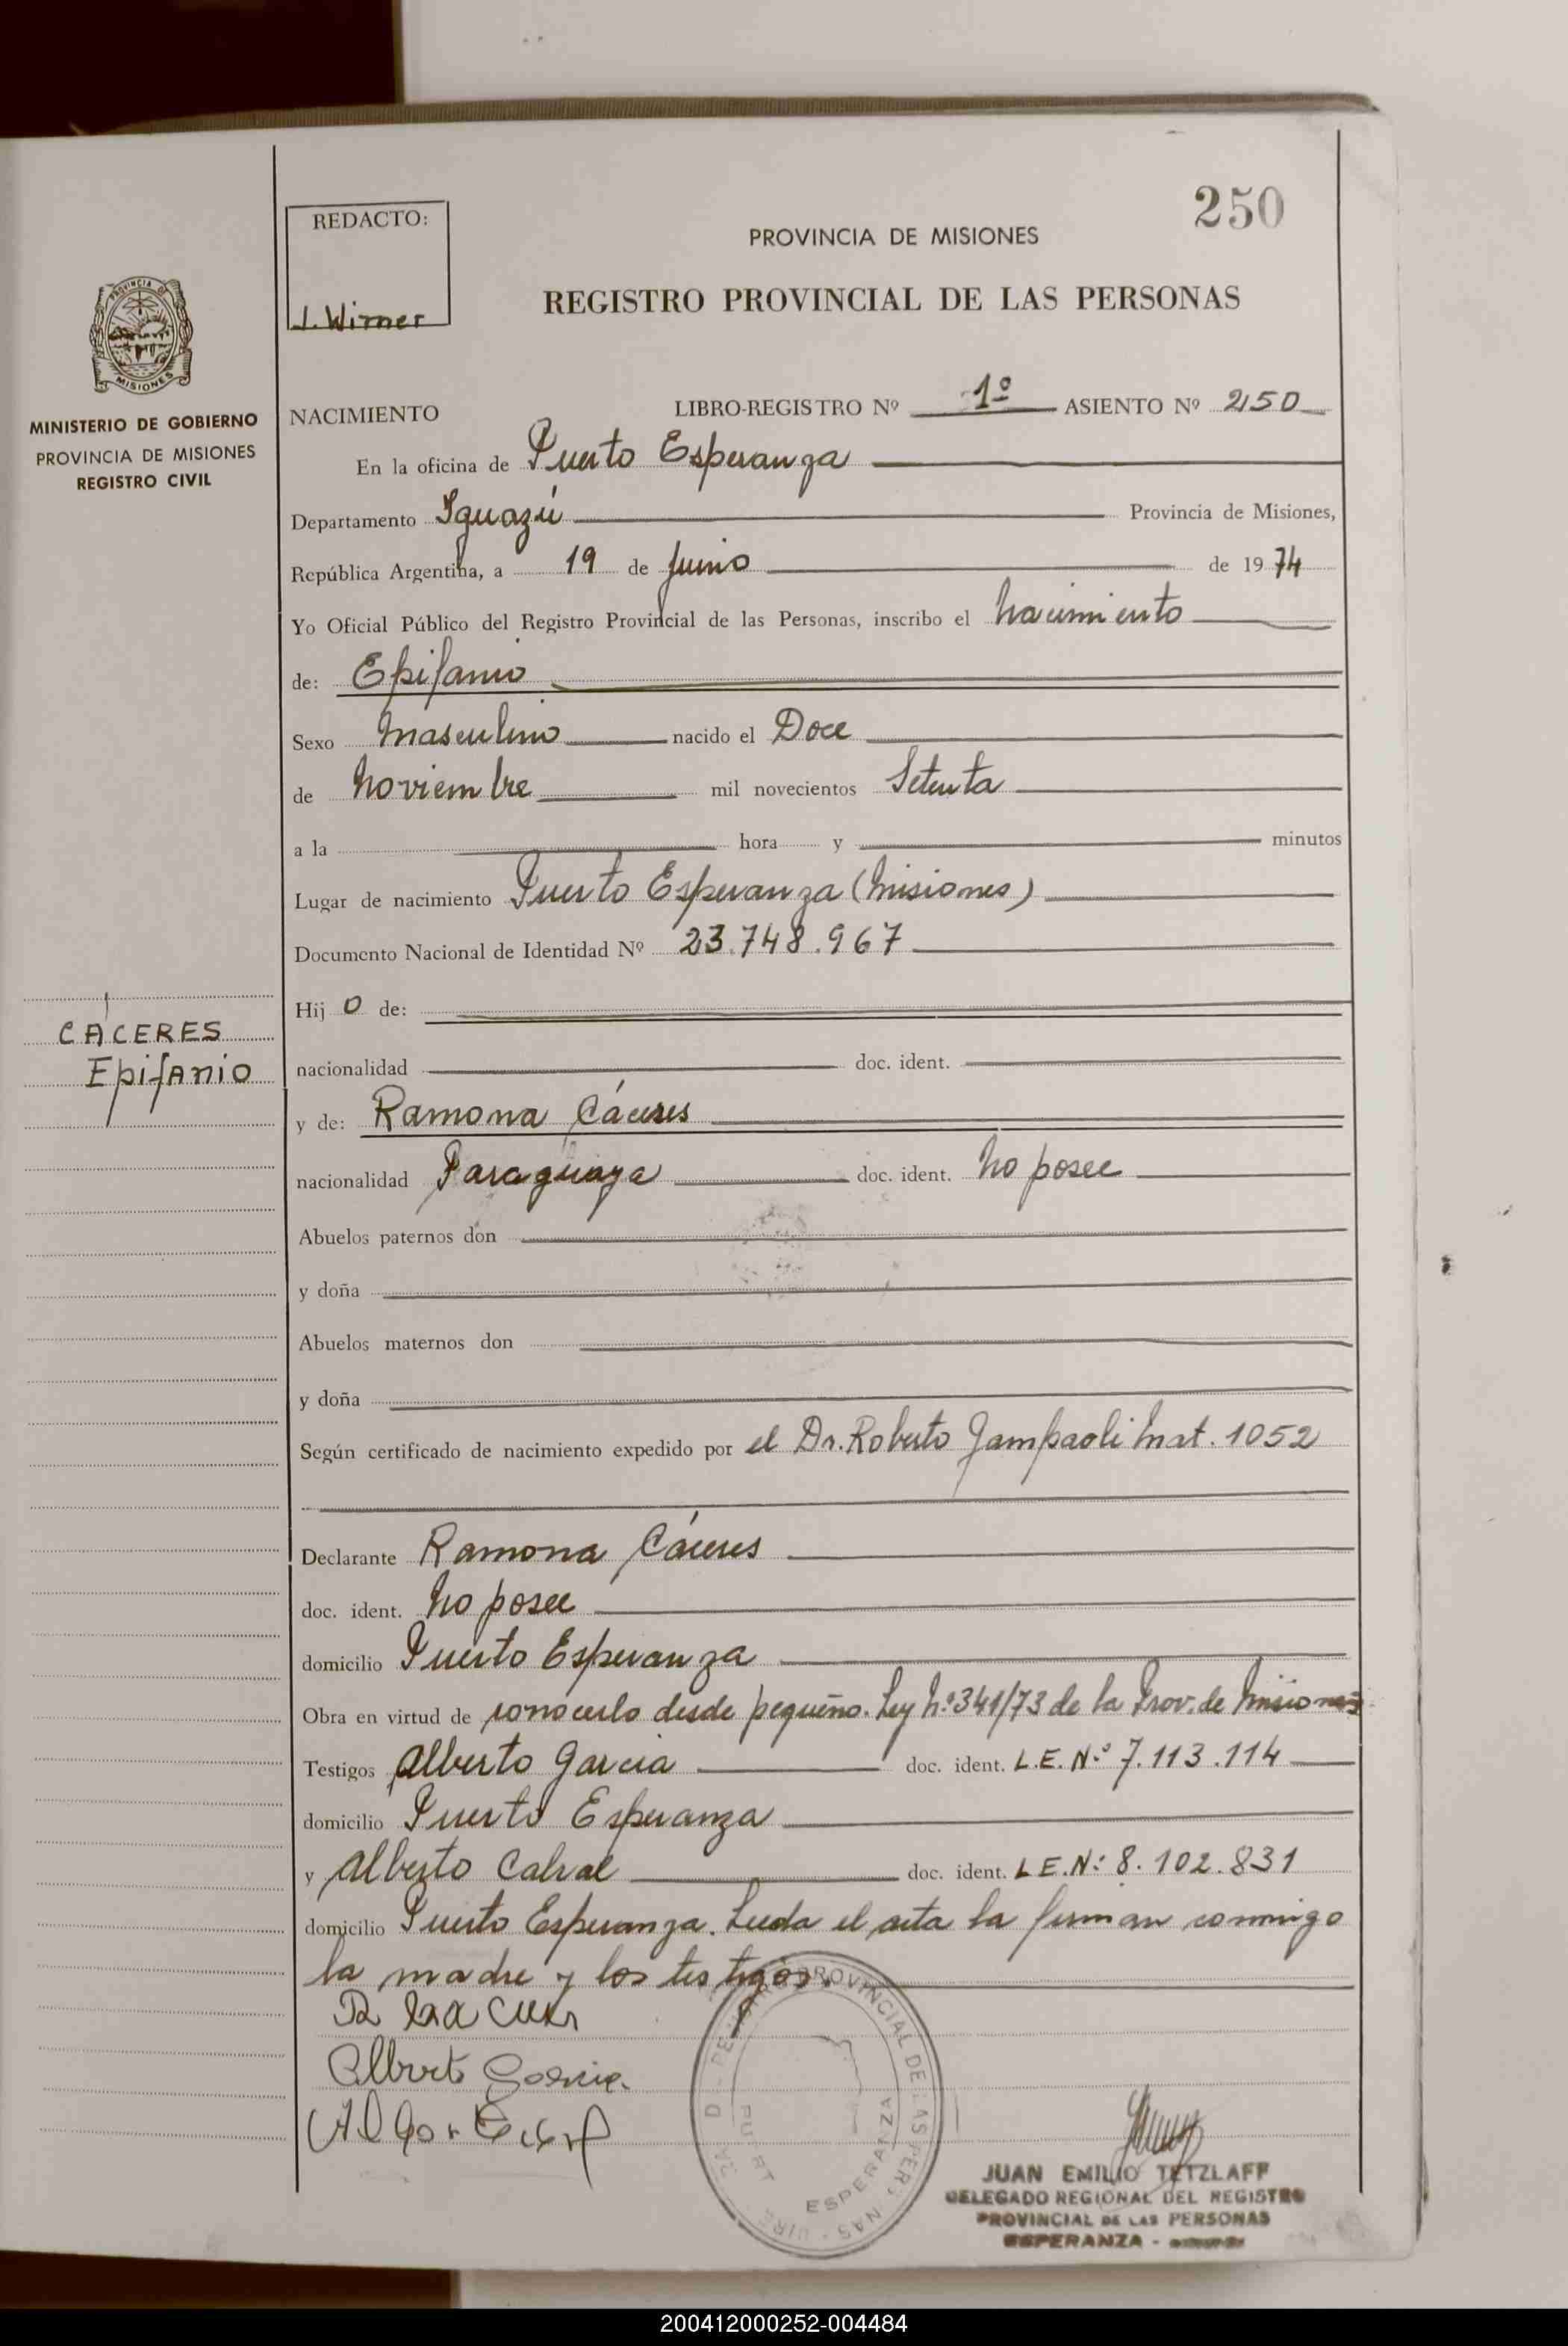 250
REDACTO:
J. Wirner
PROVINCIA DE MISIONES
REGISTRO PROVINCIAL DE LAS PERSONAS
PROVINCIA DE
MISIONES
MINISTERIO DE GOBIERNO
PROVINCIA DE MISIONES
REGISTRO CIVIL
NACIMIENTO LIBRO-REGISTRO Nº 1º ASIENTO Nº 250
En la oficina de Puerto Esperanza
Departamento Iguazú Provincia de Misiones,
República Argentina, a 19 de Junio de 1974
Yo Oficial Público del Registro Provincial de las Personas, inscribo el nacimiento
de: Epifanio
Sexo Masculino nacido el Doce
de Noviembre mil novecientos Setenta
a la hora y minutos
Lugar de nacimiento Puerto Esperanza (Misiones)
Documento Nacional de Identidad Nº 23.748.967
Hij o de:
CÁCERES
Epifanio
nacionalidad doc. ident.
y de: Ramona Cáceres
nacionalidad Paraguaya doc. ident. No posee
Abuelos paternos don
y doña
Abuelos maternos don
y doña
Según certificado de nacimiento expedido por el Dr. Roberto Jampaoli Mat. 1052
Declarante Ramona Cáceres
doc. ident. No posee
domicilio Puerto Esperanza
Obra en virtud de conocerlo desde pequeño. Ley Nº 341/73 de la Prov. de Misiones
Testigos Alberto Garcia doc. ident. L.E. Nº 7.113.114
domicilio Puerto Esperanza
y Alberto Cabral doc. ident. L.E. Nº 8.102.831
domicilio Puerto Esperanza. Leida el acta la firman conmigo
la madre y los testigos.
Alberto Garcia
PROVINCIAL DE LAS PERSONAS
ESPERANZA
JUAN EMILIO TETZLAFF
DELEGADO REGIONAL DEL REGISTRO
PROVINCIAL DE LAS PERSONAS
ESPERANZA -
200412000252-004484